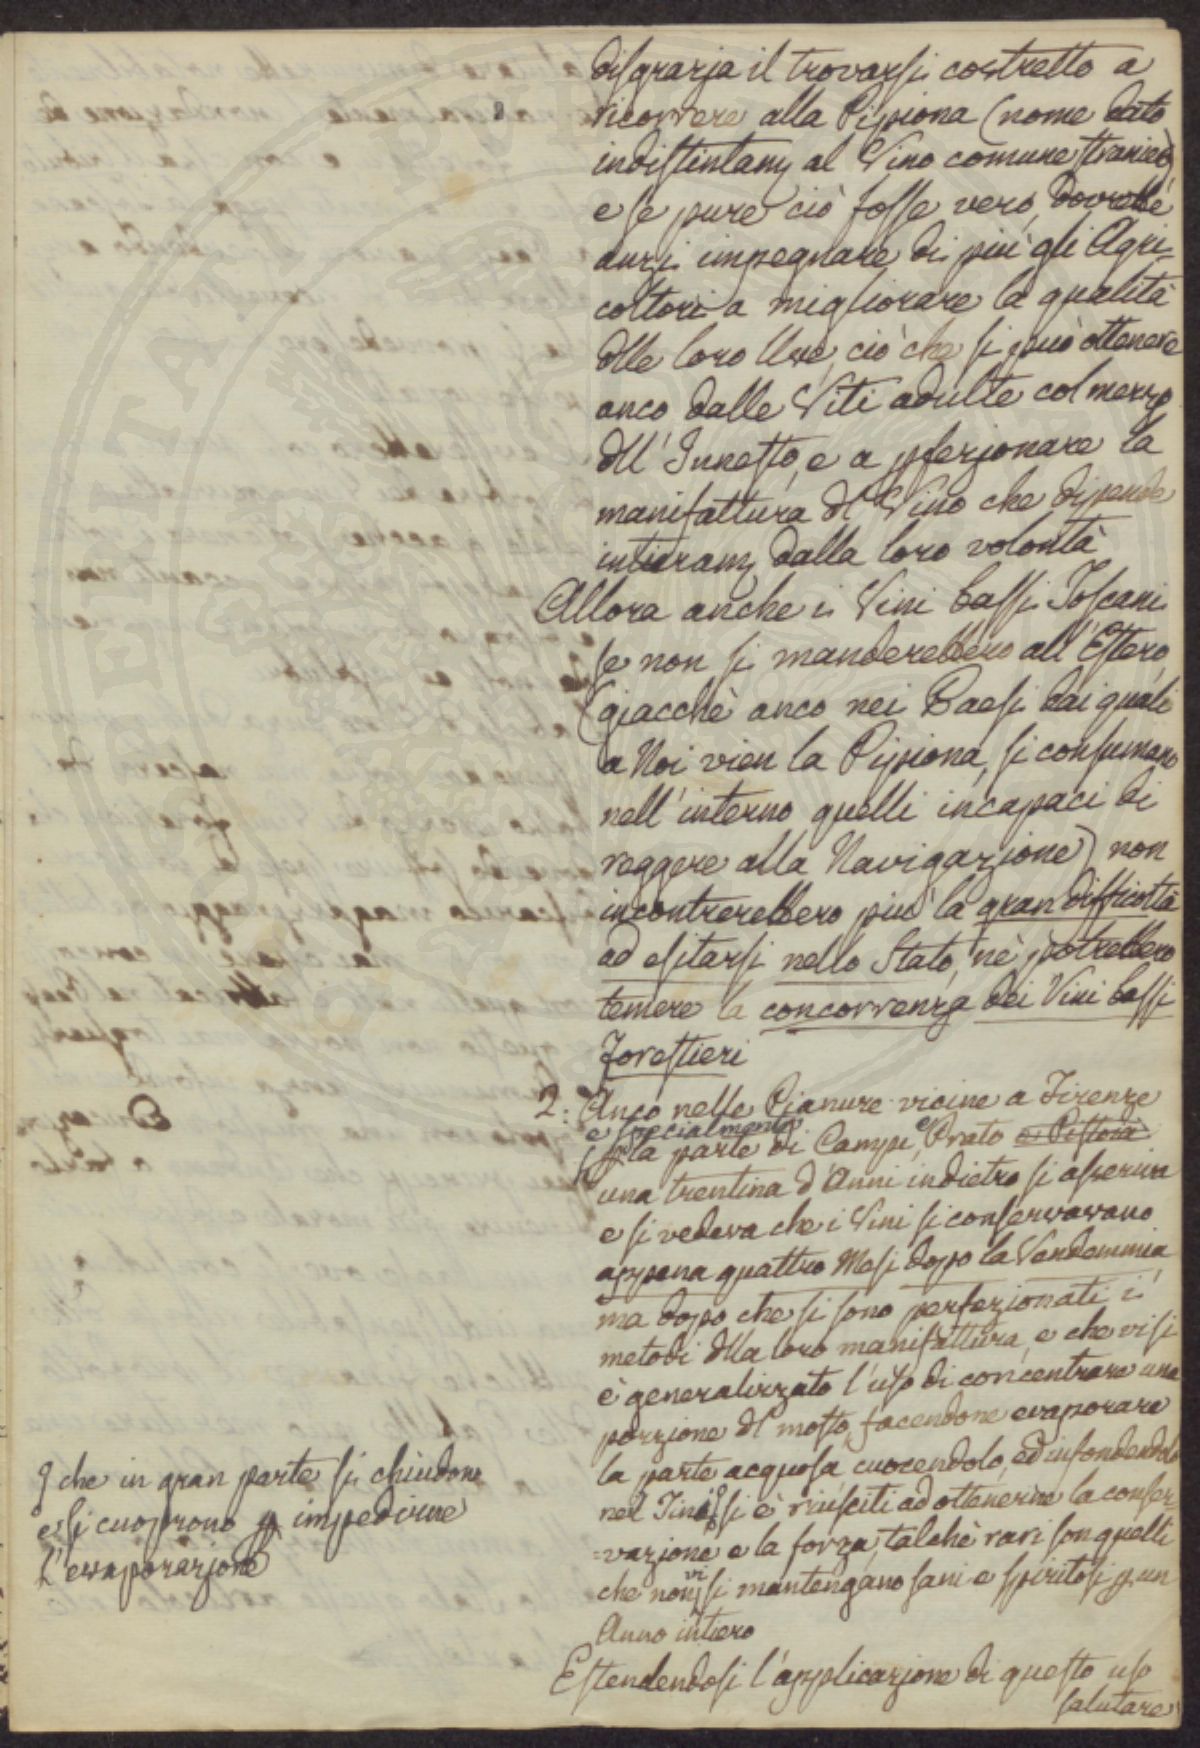 disgrazia il trovarsi costretto a
ricorrere alla Pippiona (nome dato
indistintam al Vino comune straniero)
e se pure ciò fosse vero, dovrebbe
anzi impegnare di più gli Agri=
coltori a migliorare la qualità
dlle loro Uve, ciò che si può ottenere
anco dalle Viti adulte col mezzo
dll'Innesto, e a pferzionare la
manifattura dl Vino che dipende
intieram dalla loro volontà
Allora anche i Vini bassi Toscani
se non si manderebbero all'Estero,
(giacchè anco nei Paesi dai quali
a Noi vien la Pippiona, si consumano
nell'interno quelli incapaci di
reggere alla Navigazione) non
incontrerebbero più la gran difficoltà
ad esitarsi nello Stato, nè potrebbero
temere la concorrenza dei Vini bassi
Forestieri
2: Anco nelle Pianure vicine a Firenze
e specialmente
la parte di Campi, e Prato e Pistoia
una trentina d'Anni indietro si asseriva
e si vedeva che i Vini si conservavano
appena quattro Mesi dopo la Vendemmia
ma dopo che si sono perfezionati i
metodi dlla loro manifattura, e che vi si
è generalizzato l'uso di concentrare una
porzione dl mosto, facendone evaporare
la parte acquosa cuocendolo, ed infondendolo
nel Tino, si è riusciti ad ottenerne la conser=
=vazione e la forza, talchè rari son quelli
che non vi si mantengano sani e spiritosi p un
Anno intiero
Estendendosi l'applicazione di questo uso
salutare
che in gran parte si chiudono
e si cuoprono p impedirne
l'evaporazione